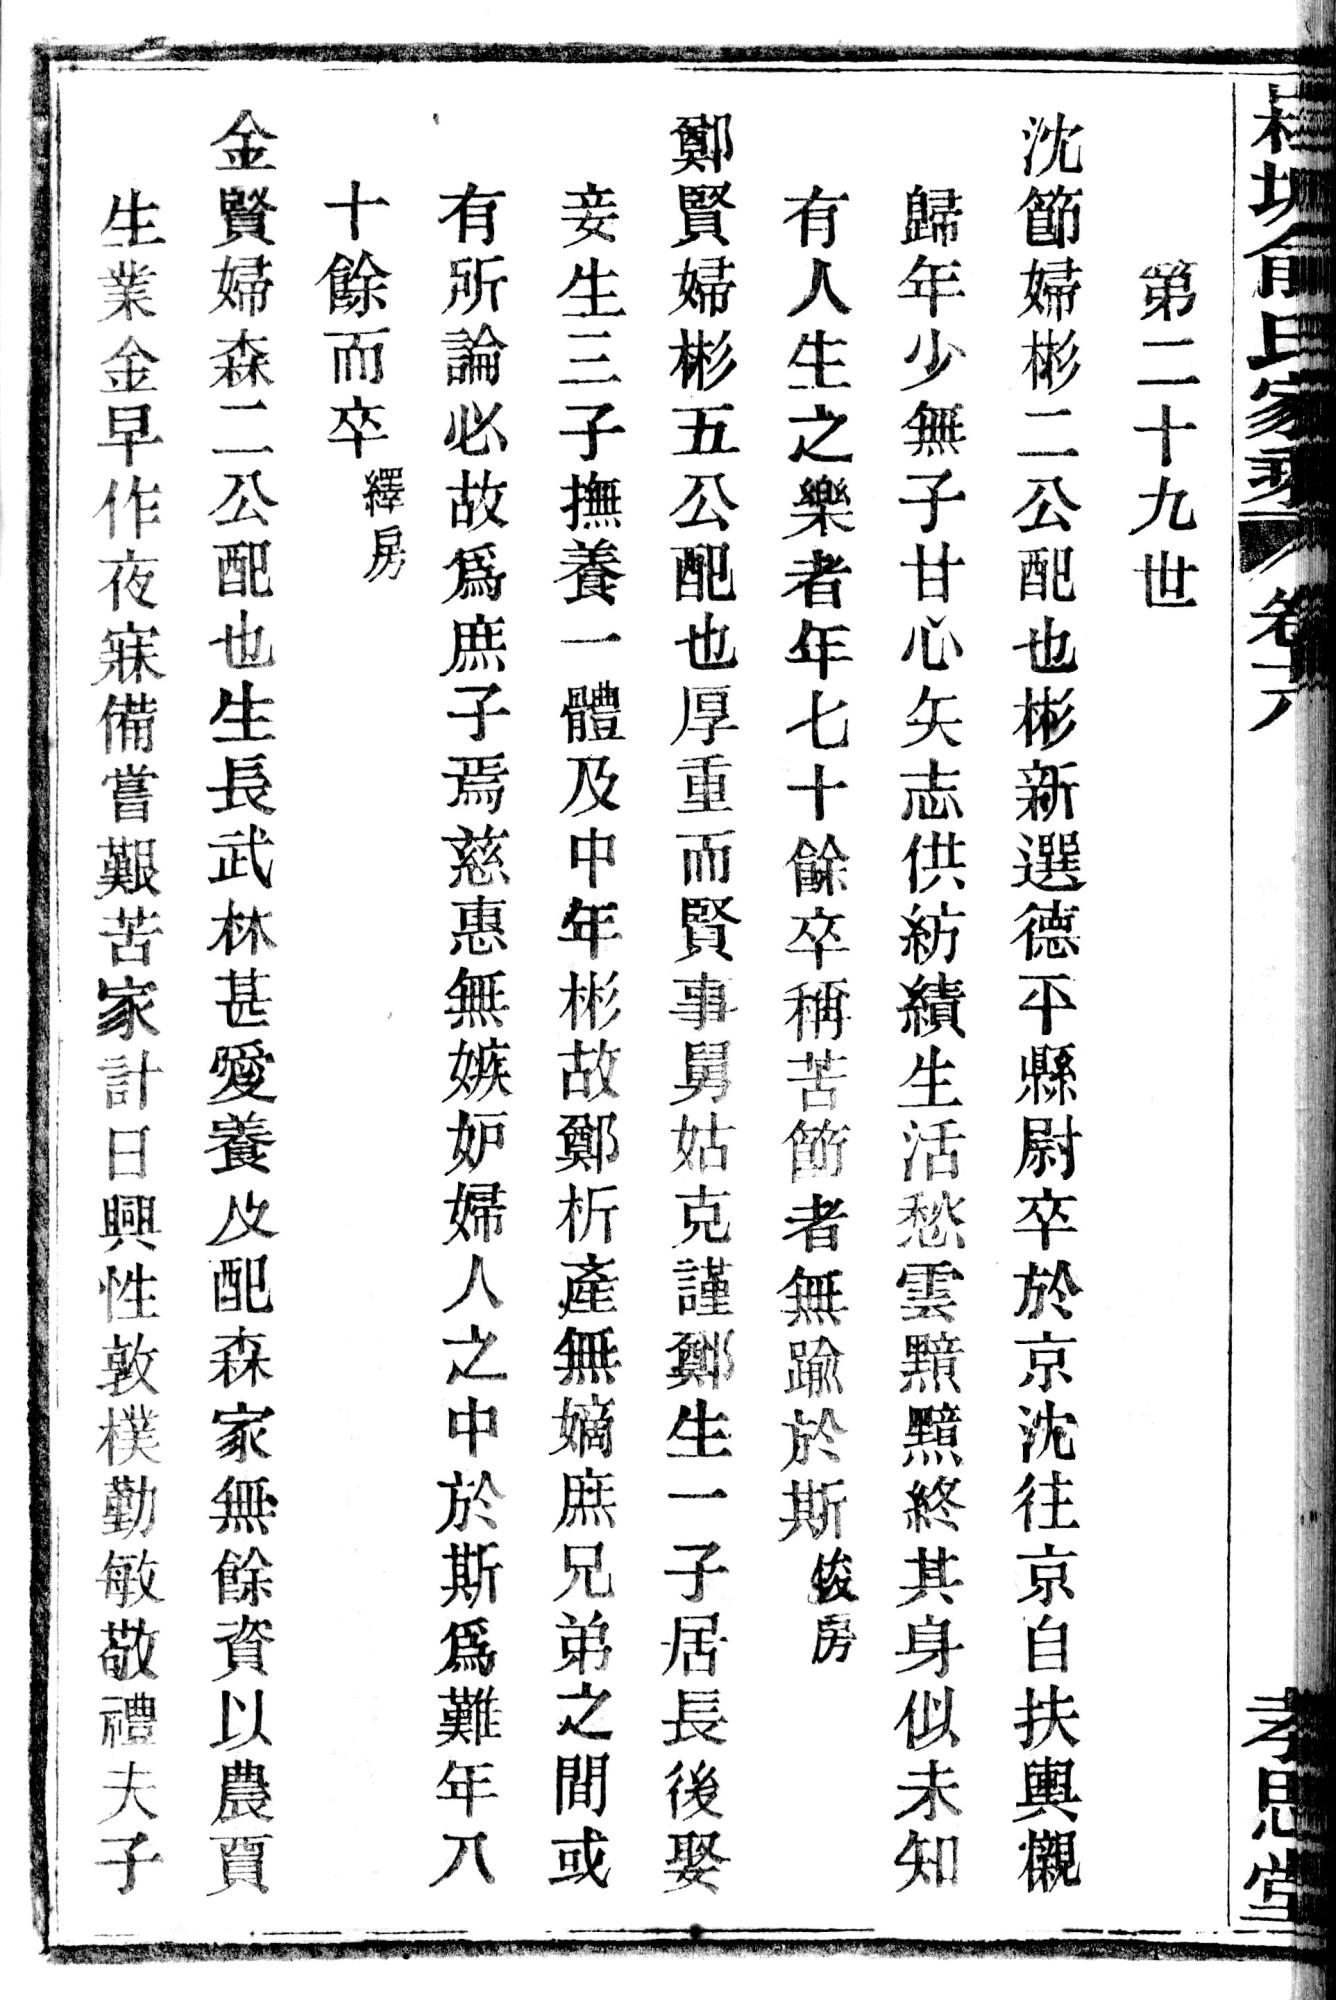 第二十九世
沈節婦彬二公配也彬新選德平縣尉卒於京沈往京自扶輿櫬
歸年少無子甘心矢志供紡績生活愁雲黯黯終其身似未知
有人生之樂者年七十餘卒稱苦節者無踰於斯 俊房
鄭賢婦彬五公配也厚重而賢事舅姑克謹鄭生一子居長後娶
妾生三子撫養一體及中年彬故鄭析產無嫡庶兄弟之間或
有所論必故為庶子焉慈惠無嫉妒婦人之中於斯為難年八
十餘而卒 繹房
金賢婦森二公配也生長武林甚愛養及配森家無餘資以農賈
生業金早作夜寐備嘗艱苦家計日興性敦樸勤敏敬禮夫子
俞氏家乘 卷十八 孝思堂